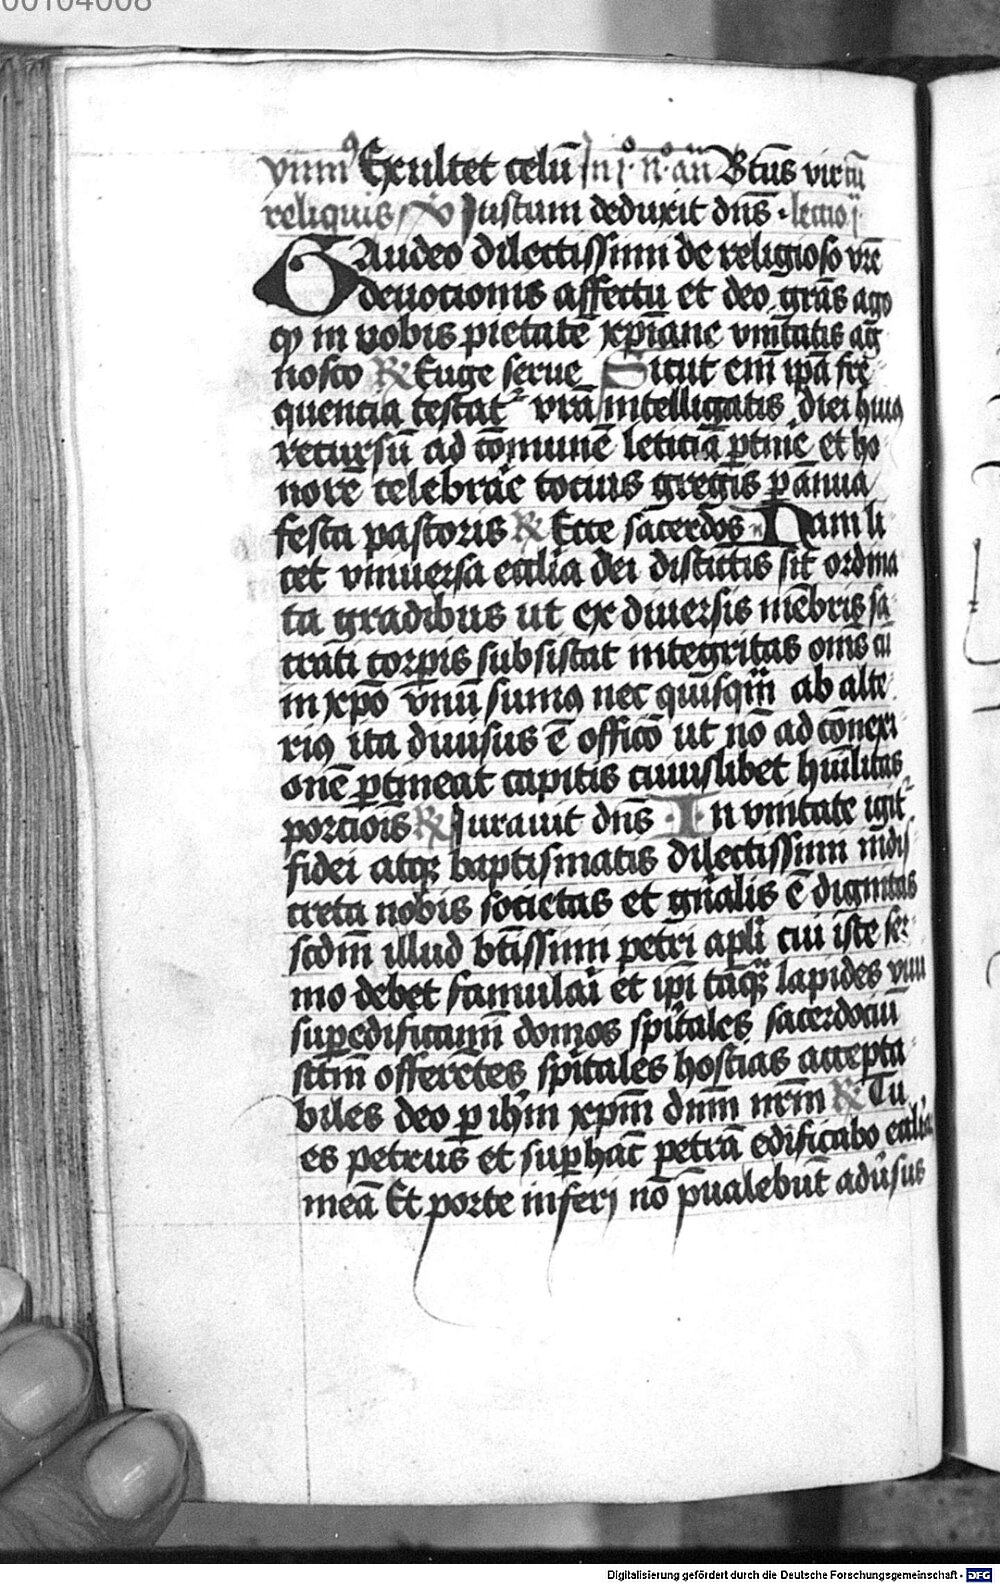 00104008
ymnꝰ Exultet celū In jº nº an̄ Btūs vir cū
reliquis ℣ Justum deduxit dn̄s · lectio j
GAudeo dilectissimi de religioso vr̄e
deuotionis affectu et deo grās ago
qꝫ in uobis pietatē xp̄iane vnitatis ag
nosco ℟ Euge serue Sicut em̄ ip̄a fre
quentia testat᷑ vrā intelligatis diei huiꝰ
recursū ad cōmunē leticiā ꝑtinē et ho
norē celebrāc tocius gregis ꝑ ānua
festa pastoris ℟ Ecce sacerdos Nam li
cet vniuersa ecclīa dei distīctis sit ordina
ta gradibus ut ex diuersis mēbris sa
crāti corꝑis subsistat integritas om̄s cū
in xp̄o vnū sumꝰ nec quisqm̄ ab alte
riꝰ ita diuisus ē officō ut nō ad cōnexi
onē ꝑtineat capitis cuiuslibet hūilitas
porcioīs ℟ Jurauit dn̄s In vnitate igit᷑
fidei atqꝫ baptismatis dilectissimi indis
creta nobis societas et gn̄alis ē dignitas
scdm̄ illud btissimi petri apl̄i cui iste ser
mo debet famulāi et ip̄i tāqꝫ lapides viui
suꝑedificamī domos spūales sacerdociū
sctm̄ offerētes spūales hostias accepta
biles deo ꝑ ihm̄ xp̄m dn̄m nr̄m ℟ Tu
es petrus et suꝑ hāc petrā edificabo ecclīā
meā Et porte inferi nō p̄ualebūt adūsus
Digitalisierung gefördert durch die Deutsche Forschungsgemeinschaft - DFG